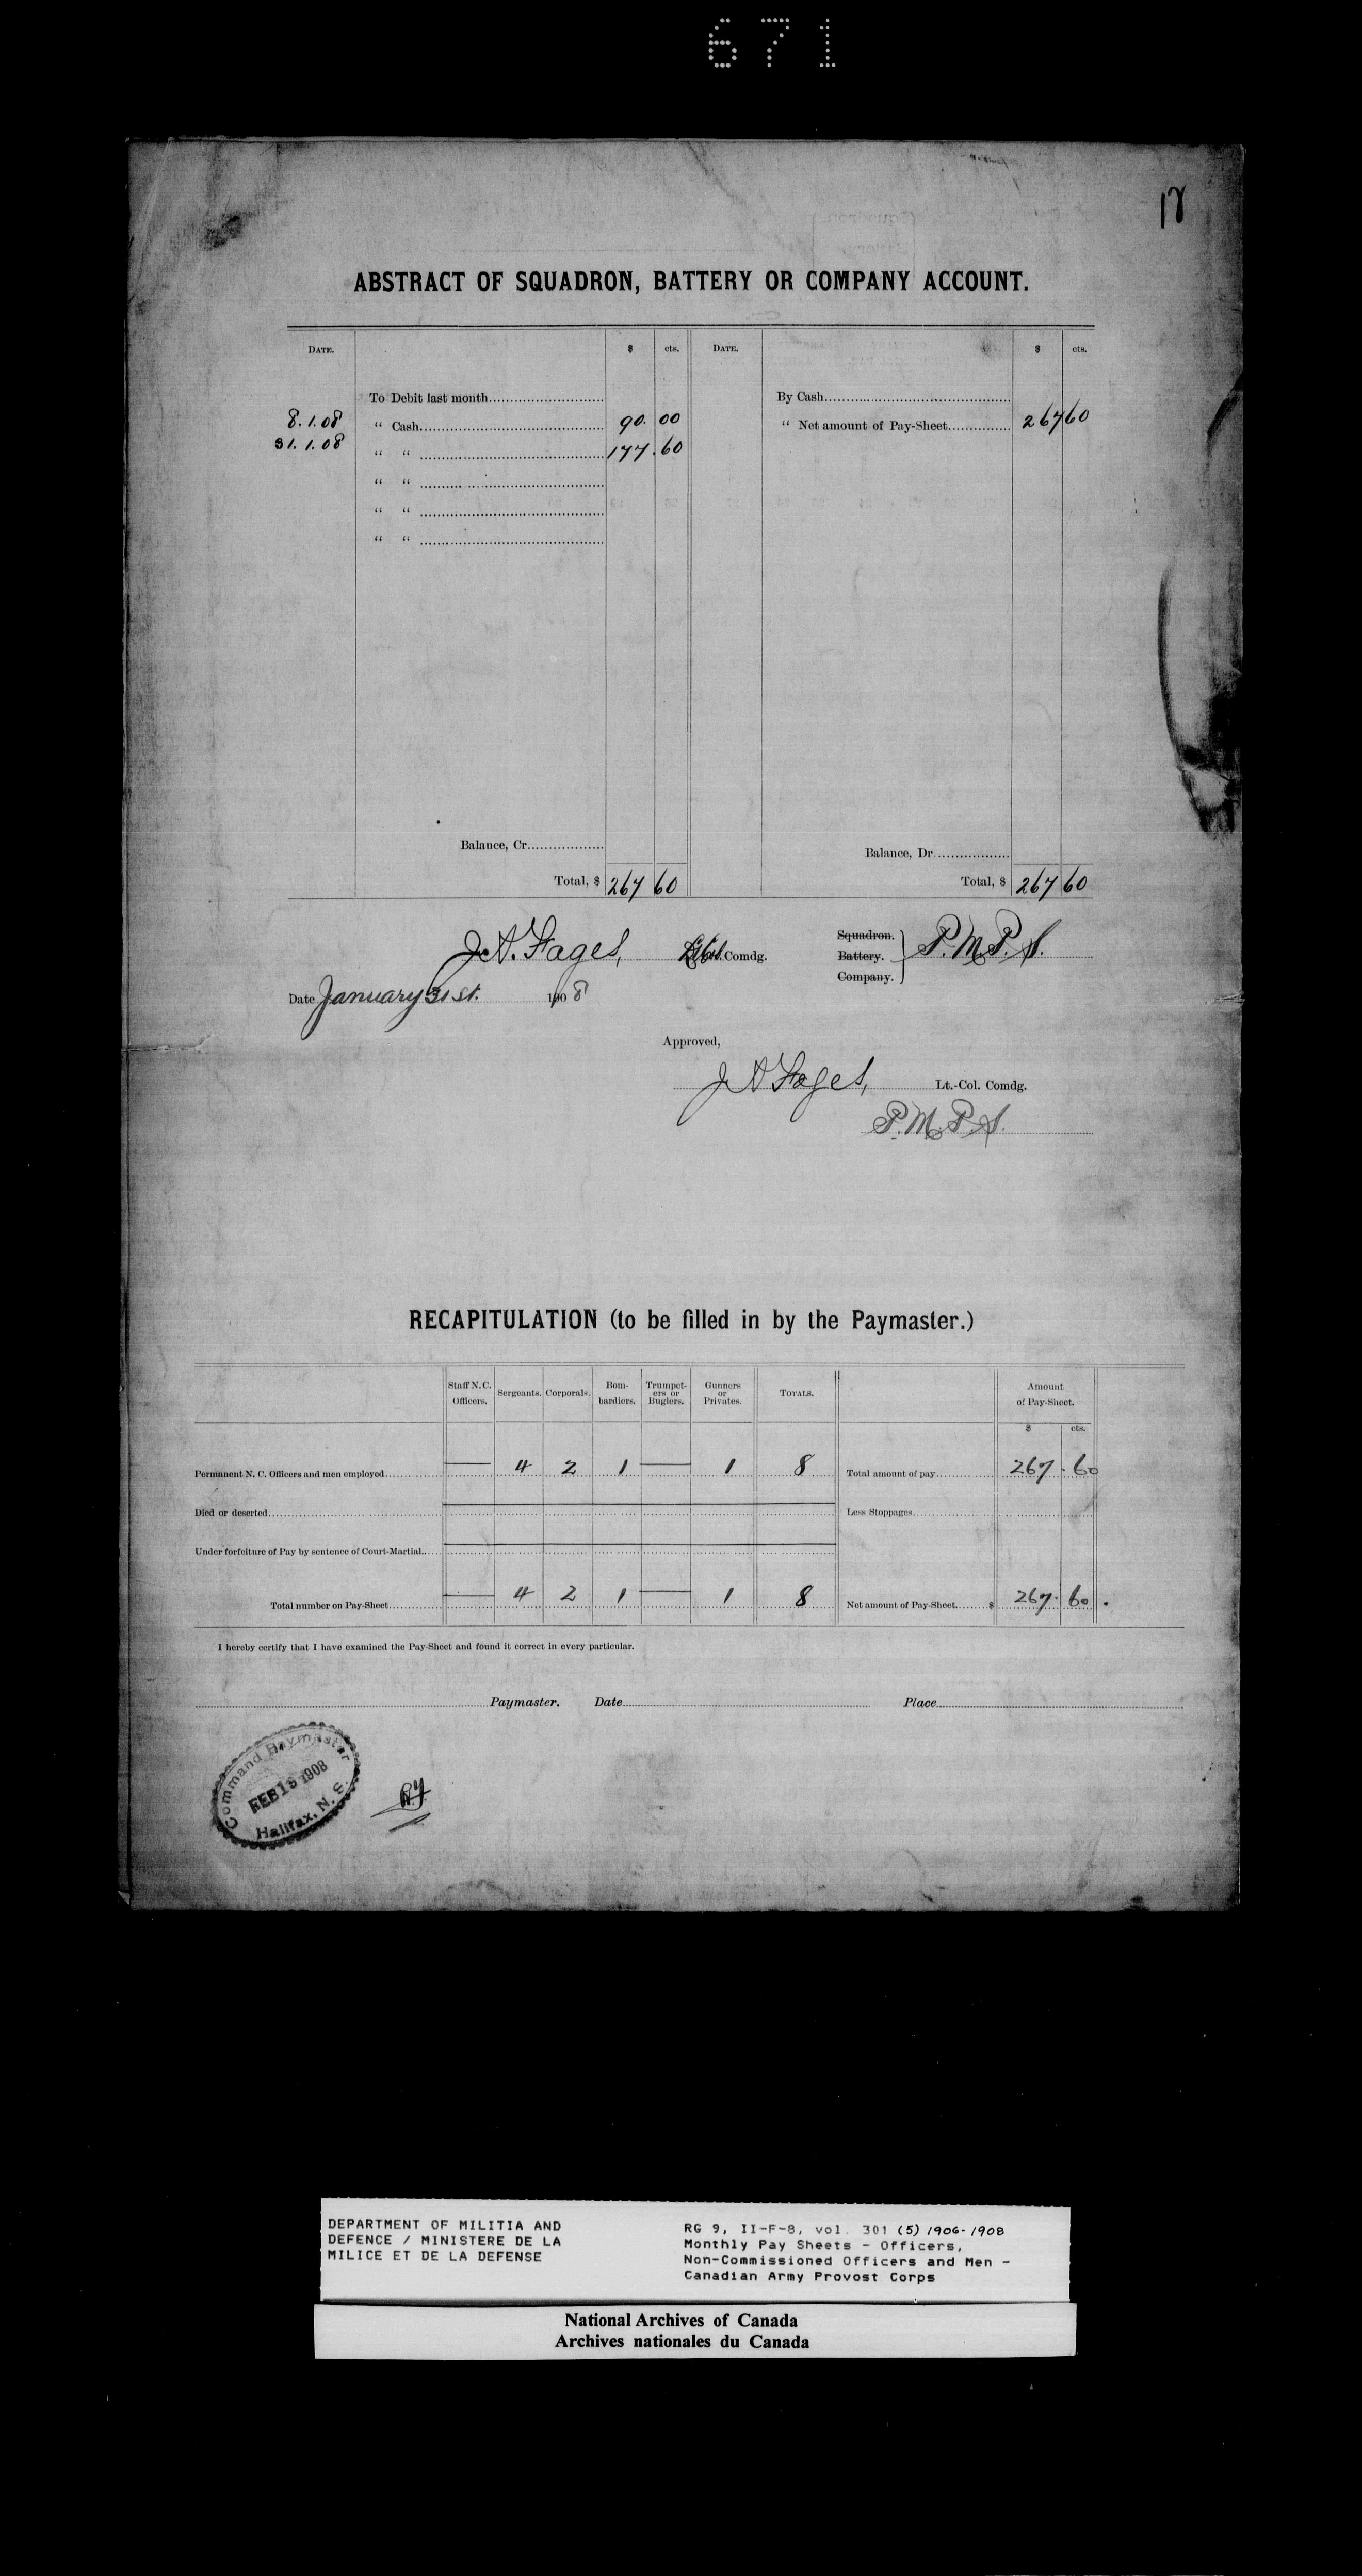 671
18
ABSTRACT OF SQUADRON, BATTERY OR COMPANY ACCOUNT.
DATE. $ cts. DATE. $ cts.
To Debit last month By Cash
8.1.08 “ Cash 90. 00 “ Net amount of Pay-Sheet 267 60
31.1.08 “ “ 177. 60
“ “
“ “
“ “
Balance, Cr. Balance, Dr.
Total, $ 267 60 Total, $ 267 60
Squadron.
J.A. Fages, Comdg. Battery. P.M.P.S.
Company.
Date January 31st. 190 8
Approved,
J A Fages, Lt.-Col. Comdg.
P.M.P.S.
RECAPITULATION (to be filled in by the Paymaster.)
Staff N.C. Officers. Sergeants. Corporals. Bombardiers. Trumpeters or Buglers. Gunners or Privates. TOTALS. Amount of Pay-Sheet.
$ cts.
Permanent N. C. Officers and men employed — 4 2 1 — 1 8 Total amount of pay 267. 60
Died or deserted Less Stoppages
Under forfeiture of Pay by sentence of Court-Martial
Total number on Pay-Sheet — 4 2 1 — 1 8 Net amount of Pay-Sheet $ 267. 60.
I hereby certify that I have examined the Pay-Sheet and found it correct in every particular.
Paymaster. Date Place
Command Paymaster
FEB 18 1908
Halifax, N. S.
DEPARTMENT OF MILITIA AND
DEFENCE / MINISTERE DE LA
MILICE ET DE LA DEFENSE
RG 9, II-F-8, vol. 301 (5) 1906-1908
Monthly Pay Sheets - Officers,
Non-Commissioned Officers and Men -
Canadian Army Provost Corps
National Archives of Canada
Archives nationales du Canada